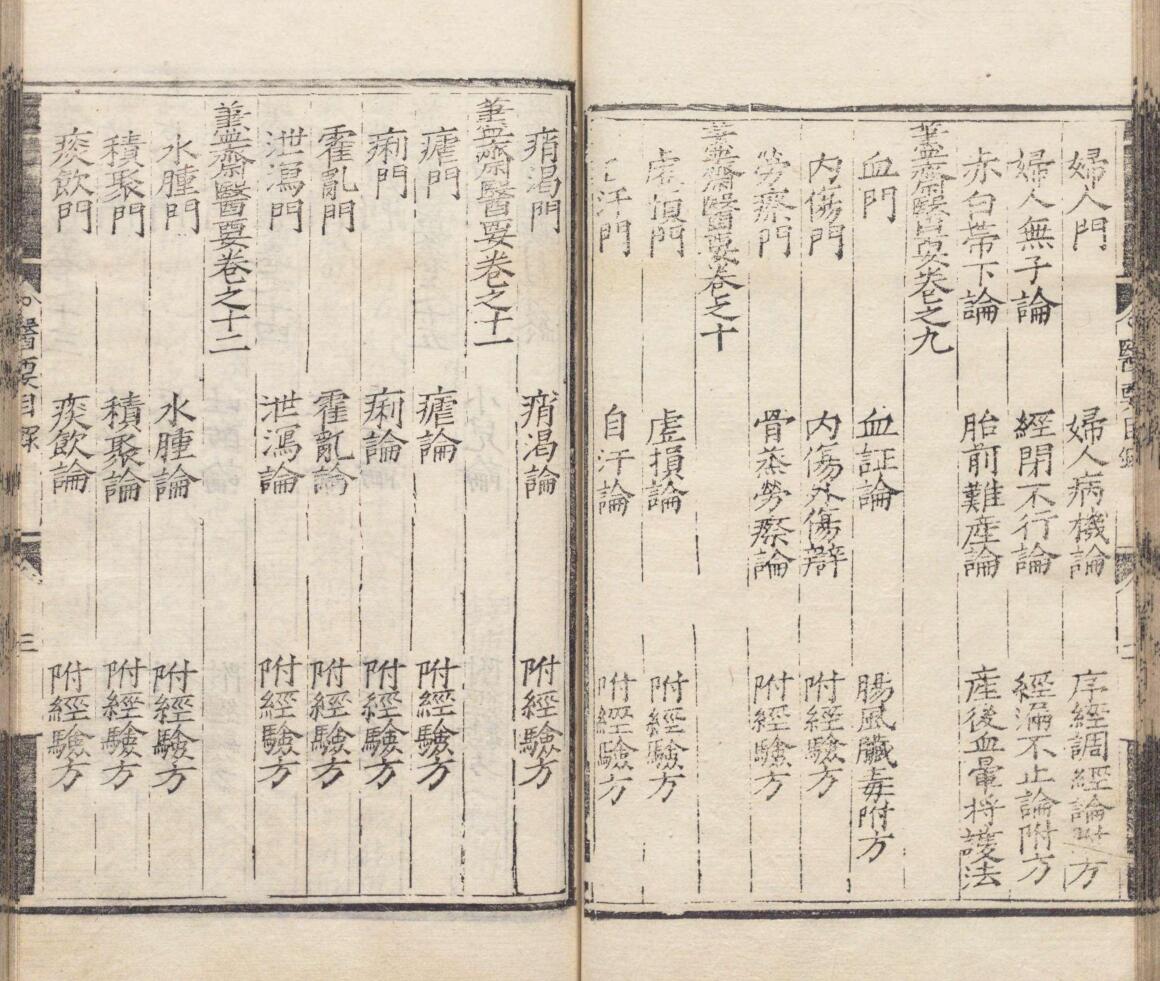 婦人門 婦人病機論 序經調經論附方
婦人無子論 經閉不行論 經漏不止論附方
赤白帶下論 胎前難產論 產後血暈將護法
藎齋醫要卷之九
血門 血証論 腸風臟毒附方
內傷門 內傷外傷辯 附經驗方
勞瘵門 骨蒸勞瘵論 附經驗方
藎齋醫要卷之十
虛損門 虛損論 附經驗方
汗門 自汗論 附經驗方
痟渴門 痟渴論 附經驗方
藎齋醫要卷之十一
瘧門 瘧論 附經驗方
痢門 痢論 附經驗方
霍亂門 霍亂論 附經驗方
泄瀉門 泄瀉論 附經驗方
藎齋醫要卷之十二
水腫門 水腫論 附經驗方
積聚門 積聚論 附經驗方
痰飲門 痰飲論 附經驗方
醫要目錄
三